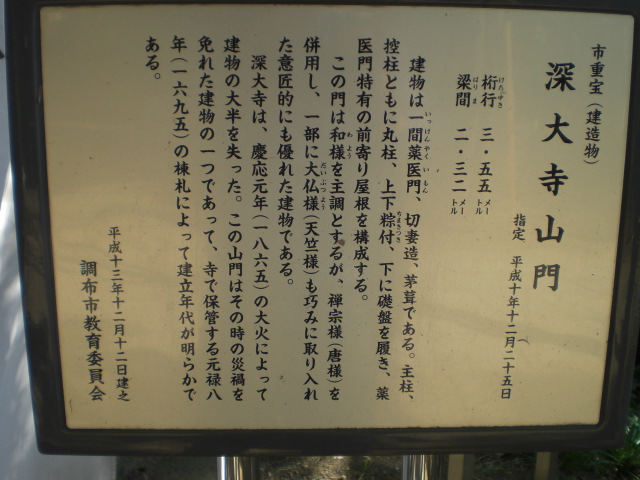 市重宝（建造物）
深大寺山門
指定　平成十年十二月二十五日
桁行　三・五五メートル
梁間　二・三二メートル
建物は一間薬医門、切妻造、茅葺である。主柱、
控柱ともに丸柱、上下粽付、下に礎盤を履き、薬
医門特有の前寄り屋根を構成する。
この門は和様を主調とするが、禅宗様（唐様）を
併用し、一部に大仏様（天竺様）も巧みに取り入れ
た意匠的にも優れた建物である。
深大寺は、慶応元年（一八六五）の大火によって
建物の大半を失った。この山門はその時の災禍を
免れた建物の一つであって、寺で保管する元禄八
年（一六九五）の棟札によって建立年代が明らかで
ある。
平成十三年十二月十二日建之
調布市教育委員会